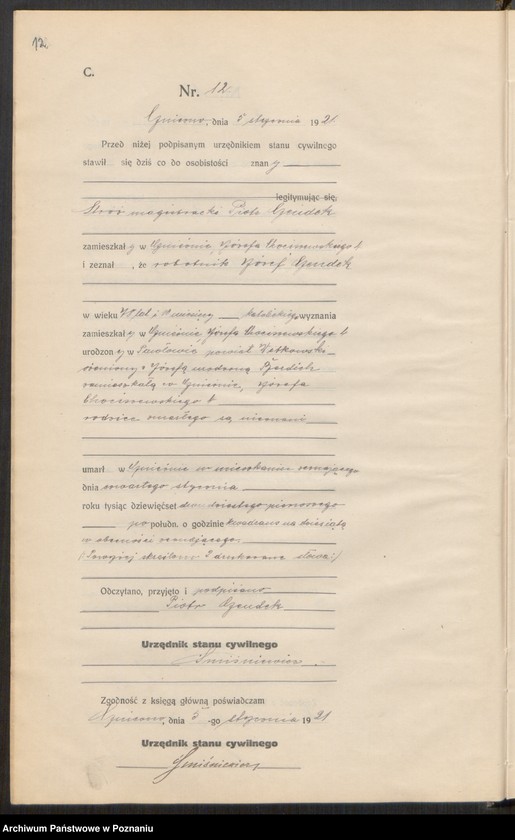 12.
C.
Nr. 12
Gniezno, dnia 5 stycznia 1921
Przed niżej podpisanym urzędnikiem stanu cywilnego
stawił się dziś co do osobistości znany
legitymując się,
Stróż magistracki Piotr
zamieszkały w Gnieźnie, Józefa Chociszewskiego
i zeznał , że robotnik Józef
w wieku lat i miesięcy katolickiego wyznania
zamieszkały w Gnieźnie, Józefa Chociszewskiego
urodzony w powiat Witkowski
z Józefą urodzoną
zamieszkałą w Gnieźnie, Józefa
Chociszewskiego
rodzice zmarłego są nieznani
umarł w Gnieźnie w mieszkaniu zeznającego
dnia czwartego stycznia
roku tysiąc dziewięćset dwudziestego pierwszego
po połudn. o godzinie kwadrans na dziesiątą
w obecności zeznającego.
(Powyżej skreślono drukowane słowa:)
Odczytano, przyjęto i podpisano
Piotr
Urzędnik stanu cywilnego
Zgodność z księgą główną poświadczam
Gniezno, dnia 5 -go stycznia 1921
Urzędnik stanu cywilnego
Archiwum Państwowe w Poznaniu